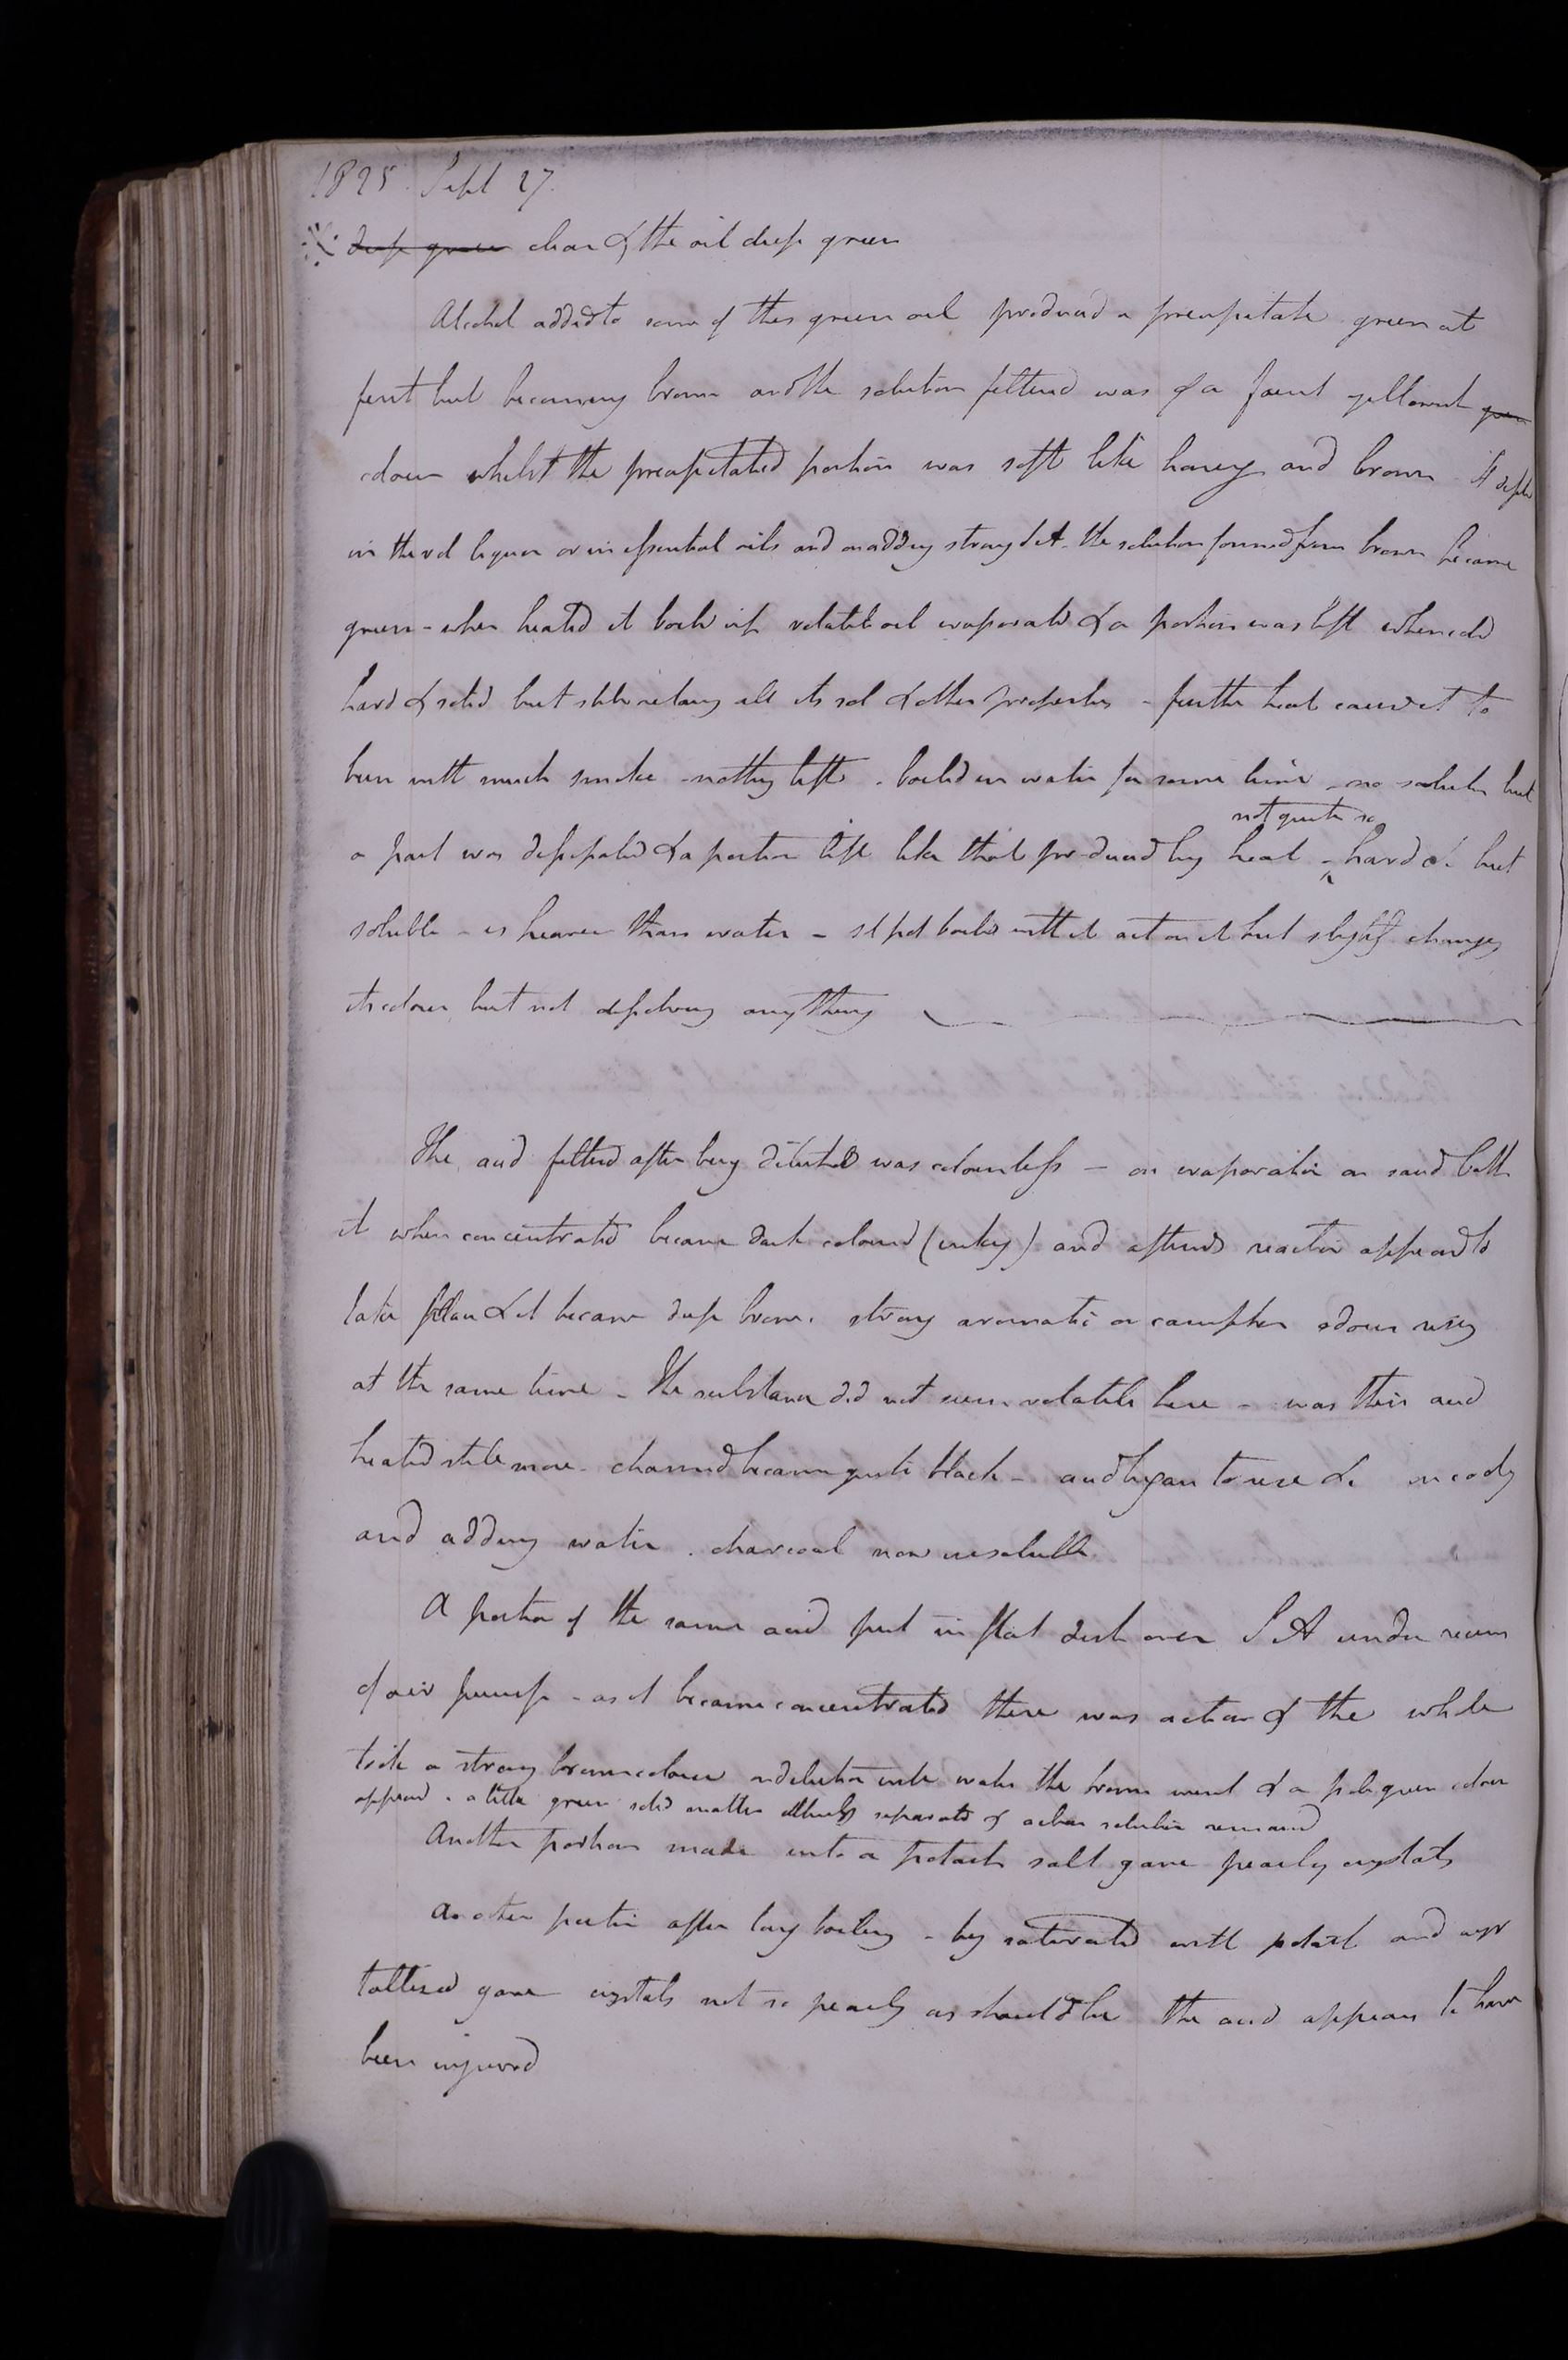 1825 Sept 27.
deep green clear & the oil deep green
Alcohol added to some of this green oil produced a precipitate green at
first but becoming brown and the solution filtered was of a faint yellowish green
colour whilst the precipitated portion was soft like honey and brown It
in the liquor or in essential oils and on adding strong the solution formed from brown became
green - when heated it boils volatile oil evaporated & a portion was left when cold
hard & solid but still retaing all its sol & other properties - further heat caused it to
burn with much smoke - nothing left . boiled in water for some time - no solution but
a part was dissipated & a portion left like that produced by heat - not quite so hard &c but
soluble - is heavier than water - st pot boiled with it act on it but slightly changes
its colour but not dissolving any thing
The acid filtered after being diluted was colourless - on evaporation on sand bath
it when concentrated became dark coloured (inky) and afterwds reaction appeard to
take place & it became deep brown. strong aromatic or camphor odour rising
at the same time - The substance did not seem volatile here - was then and
heated still more - charred became quite black - and began to rise &c on cooly
and adding water . charcoal now insoluble.
A portion of the same acid put in flat dish over S A under recever
of air pump - as it became concentrated there was action & the whole
took a strong brown colour on dilution with water the brown went & a pale green colour
appeard . a little green solid matter ultimately separated & a clear solution remaind
Another portion made into a potash salt gave pearly crystals
Another portion after long boiling - being saturated with potash and crys
tallized gave crystals not so pearly as should be the acid appears to have
been injured